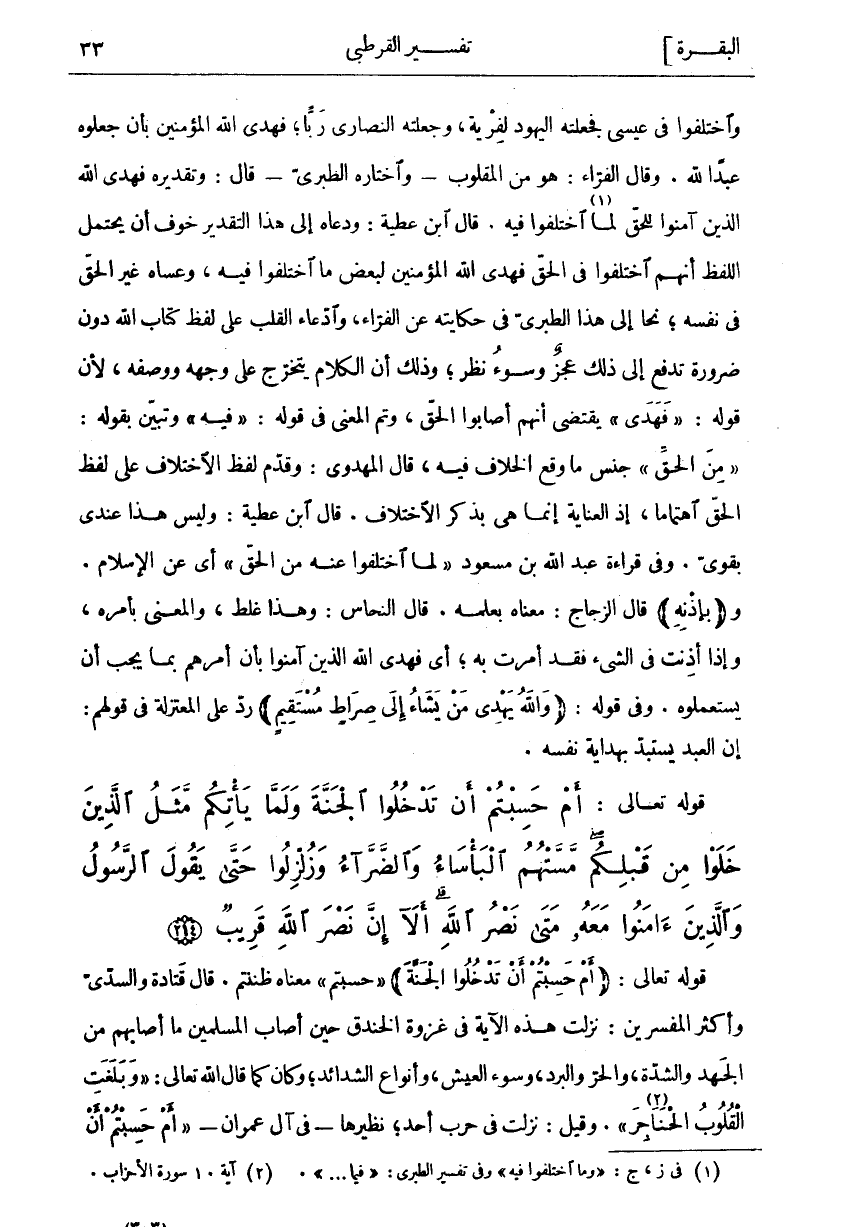 البقـــرة ] تفســـير القرطبى ٣٣
وٱختلفوا فى عيسى فجعلته اليهود لفِرْية، وجعلته النصارى رَبًّا؛ فهدى الله المؤمنين بأن جعلوه
عبدًا لله . وقال الفرّاء : هو من المقلوب — وٱختاره الطبرىّ — قال : وتقديره فهدى الله
الذين آمنوا للحقّ لمــا(١) ٱختلفوا فيه . قال ٱبن عطية : ودعاه إلى هذا التقدير خوف أن يحتمل
اللفظ أنهــم ٱختلفوا فى الحقّ فهدى الله المؤمنين لبعض ما ٱختلفوا فيــه ، وعساه غير الحقّ
فى نفسه ؛ نحا إلى هذا الطبرىّ فى حكايته عن الفرّاء، وٱدّعاء القلب على لفظ كتاب الله دون
ضرورة تدفع إلى ذلك عجزٌ وســوءُ نظر ؛ وذلك أن الكلام يتخرّج على وجهه ووصفه ، لأن
قوله : « فَهَدَى » يقتضى أنهم أصابوا الحقّ ، وتم المعنى فى قوله : « فيــه » وتبيّن بقوله :
« مِنَ الحَـقِّ » جنس ما وقع الخلاف فيــه ، قال المهدوى : وقدّم لفظ الٱختلاف على لفظ
الحقّ ٱهتماما ، إذ العناية إنمــا هى بذكر الٱختلاف . قال ٱبن عطية : وليس هــذا عندى
بقوىّ . وفى قراءة عبد الله بن مسعود « لمــا ٱختلفوا عنــه من الحقّ » أى عن الإسلام .
و ﴿ بِإذْنِهِ ﴾ قال الزجاج : معناه بعلمــه . قال النحاس : وهــذا غلط ، والمعــنى بأمره ،
وإذا أذِنت فى الشىء فقــد أمرت به ؛ أى فهدى الله الذين آمنوا بأن أمرهم بمــا يجب أن
يستعملوه . وفى قوله : ﴿ وَاللهُ يَهْدِى مَنْ يَشَاءُ إلَى صِرَاطٍ مُسْتَقِيمٍ ﴾ ردّ على المعتزلة فى قولهم :
إن العبد يستبدّ بهداية نفسه .
قوله تعــالى : أَمْ حَسِبْتُمْ أَن تَدْخُلُوا ٱلْجَنَّةَ وَلَمَّا يَأْتِكُم مَّثَلُ ٱلَّذِينَ
خَلَوْا مِن قَبْلِكُم ۖ مَّسَّتْهُمُ ٱلْبَأْسَاءُ وَٱلضَّرَّآءُ وَزُلْزِلُوا حَتَّىٰ يَقُولَ ٱلرَّسُولُ
وَٱلَّذِينَ ءَامَنُوا مَعَهُۥ مَتَىٰ نَصْرُ ٱللَّهِ ۗ أَلَآ إِنَّ نَصْرَ ٱللَّهِ قَرِيبٌ ﴿٢١٤﴾
قوله تعالى : ﴿ أَمْ حَسِبْتُمْ أَنْ تَدْخُلُوا الْجَنَّةَ ﴾ «حسبتم» معناه ظننتم . قال قَتادة والسدّىّ
وأكثر المفسرين : نزلت هــذه الآية فى غزوة الخندق حين أصاب المسلمين ما أصابهم من
الجَـهد والشدّة، والحرّ والبرد، وسوء العيش، وأنواع الشدائد؛ وكان كما قال الله تعالى : «وَبَلَغَتِ
الْقُلُوبُ الْحَنَاجِرَ(٢)» . وقيل : نزلت فى حرب أحد؛ نظيرها — فى آل عمران — « أَمْ حَسِبْتُمْ أَنْ
(١) فى ز ، ج : «وما ٱختلفوا فيه» وفى تفسير الطبرى : « فيما ... » . (٢) آية ١٠ سورة الأحزاب .
(٣-٣)